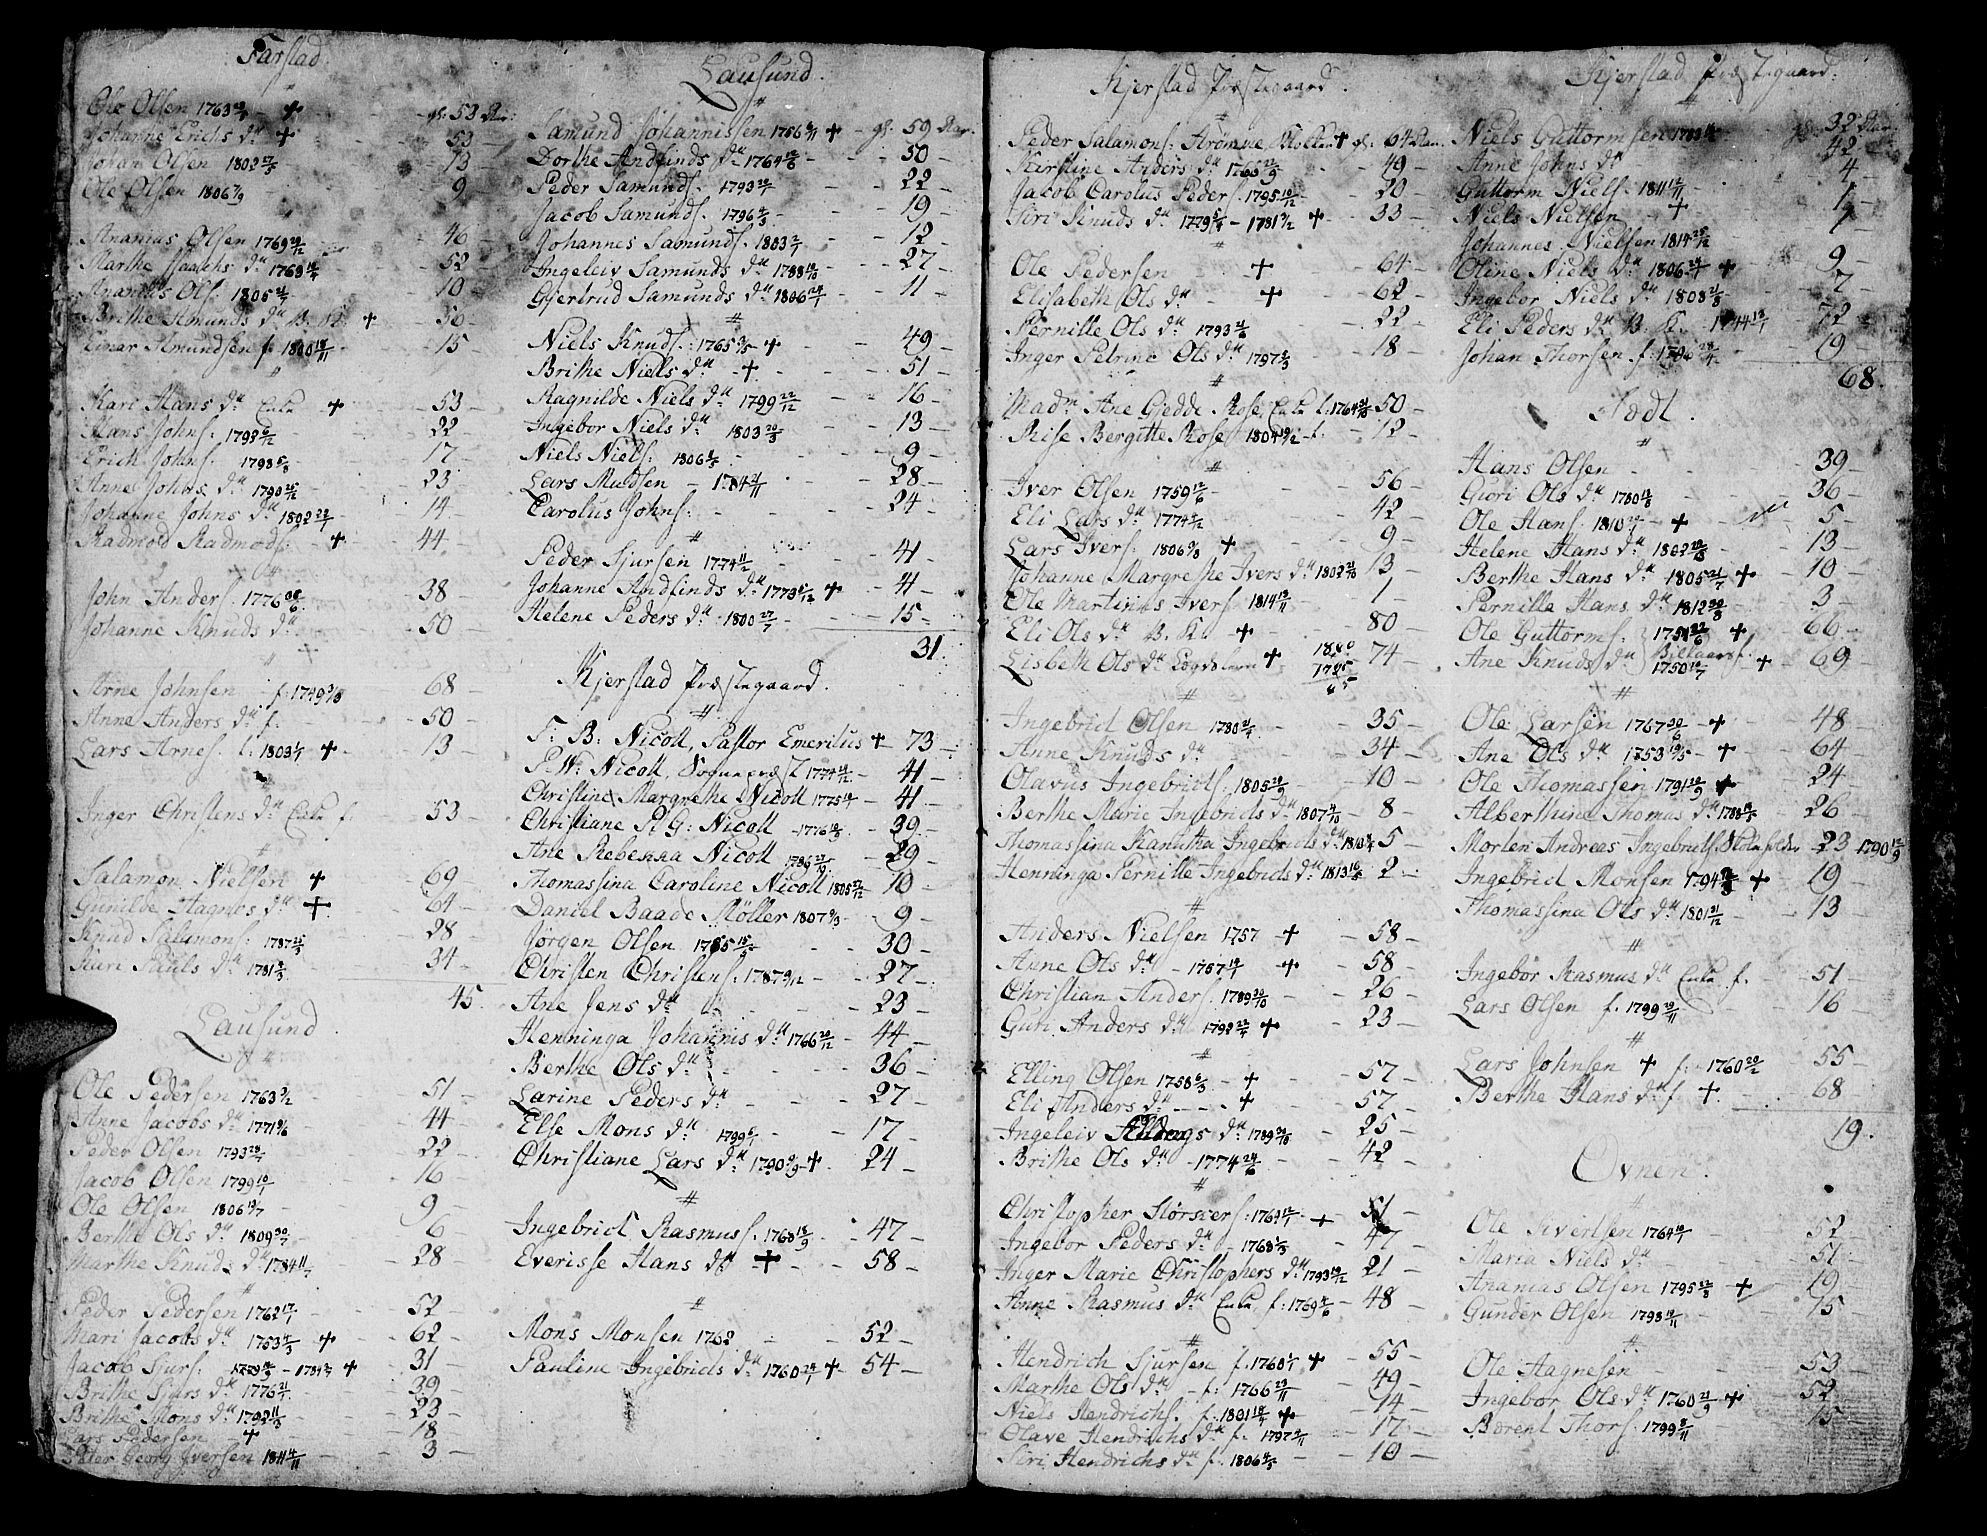 Farstad.
Ole Olsen 1763 + gl: 53 Aar:
Johanne Erichs dtr + 53
Johan Olsen 1802 27/5 13
Ole Olsen 1806 7/9 9
Ananias Olsen 1769 46
Marthe Isaachs dtr 1763 52
Ananias Ols: 1805 10
Brithe Amunds dtr B. K. + 50
Einar Amundsen f. 1800 18/11 15
Kari Hans dtr Enke + 53
Hans Johns: 1792 22
Erich Johns: 1798 5/8 17
Anne Johns dtr 1790 23
Johanne Johns dtr 1802 14
Radmod Radmods: + 44
John Anders: 1776 38
Johanne Knuds dtr 50
Arne Johnsen f. 1749 68
Anne Anders dtr f. 50
Lars Arnes: f. 1803 + 13
Inger Christens dtr Enke f. 53
Salamon Nielsen + 69
Gunilde Hagnes dtr + 64
Knud Salamons: 1787 28
Kari Pauls dtr 1781 34
45.
Lausund.
Ole Pedersen 1763 51
Anne Jacobs dtr 1771 44
Peder Olsen 1793 22
Jacob Olsen 1799 10/1 16
Ole Olsen 1806 9
Berthe Ols dtr 1809 30/7 6
Marthe Knuds dtr 1784 28
Peder Pedersen 1762 17/1 52
Mari Jacobs dtr 1753 + 62
Jacob Sjurs: 1784 + 31
Brithe Sjurs dtr 1776 39
Brithe Mons dtr 1792 23
Lars Pedersen + 18
Peter Georg Iversen 1811 3
Lausund.
Samund Johannissen 1756 + gl: 59 Aar.
Dorthe Andfinds dtr 1764 50
Peder Samunds. 1793 22
Jacob Samunds. 1796 19
Johannes Samunds. 1803 12
Ingeleiv Samunds dtr 1788 27
Gjertrud Samunds dtr 1806 11
Niels Knuds: 1765 + 49
Brithe Niels dtr + 51
Ragnilde Niels dtr 1799 22/12 16
Ingebor Niels dtr 1803 20/3 13
Niels Niels: 1806 9
Lars Mudsen 1784 28
Carolus Johns: 24
Peder Sjursen 1774 11/2 41
Johanne Andfinds dtr 1773 + 41
Helene Peders dtr 1800 27/7 15
31.
Kjerstad Præstegaard.
T: B: Nicoll, Pastor Emeritus + 73
P. W: Nicoll, Sognepræst 1774 41
Christine Margrethe Nicoll 1775 41
Christiane P. G: Nicoll 1776 39
Ane Rebekka Nicoll 1786 29
Thomassina Caroline Nicoll 1805 10
Daniel Baade Møller 1807 9
Jørgen Olsen 1785 30
Christen Christens: 1787 27
Ane Jens dtr 23
Henninga Johannis dtr 1766 20/12 44
Berthe Ols dtr 36
Larine Peders dtr 27
Else Mons dtr 1799 17
Christiane Lars dtr 1790 + 24
Ingebrid Rasmuss. 1768 18/9 47
Everisse Hans dtr + 58
Mons Monsen 1762 52
Pauline Ingebrids dtr 1760 + 54
Kjerstad Præstegaard.
Peder Salamons: Strømme + gl: 64 Aar.
Kirstine Anders dtr 1766 49
Jacob Carolus Peders. 1795 10/12 20
Siri Knuds dtr 1779 - 1781 + 33
Ole Pedersen + 64
Elisabeth Ols dtr + 62
Pernille Ols dtr 1793 22
Inger Petrine Ols dtr 1797 18
Madm Ane Giedde Rose, Enke f. 1764 50
Rise Bergitte Rose 1804 f. 12
Iver Olsen 1759 12/6 56
Eli Lars dtr 1774 42
Lars Ivers: 1806 + 9
Johanne Margrethe Ivers dtr 1802 13
Ole Martinus Ivers: 1814 13/11 1
Eli Ols dtr B. K. + 80
Lisbeth Ols dtr Logdslem + 74
Ingebrid Olsen 1780 35
Anne Knuds dtr 34
Olavus Ingebrids. 1805 10
Berthe Marie Ingebrids dtr 1807 8
Thomassina Kanutha Ingebrids dtr 1810 5
Henninga Pernille Ingebrids dtr 1813 2
Anders Nielsen 1757 + 58
Anne Ols dtr 1757 + 58
Christian Anders: 1789 20/10 26
Guri Anders dtr 1792 + 23
Elling Olsen 1758 6/3 + 57
Eli Anders dtr + 57
Ingeleiv Ellings dtr 1789 25
Brithe Ols dtr 1774 24/6 42
Christopher Størsers: 1764 + 51
Ingebor Peders dtr 1768 47
Inger Marie Christophers dtr 1793 21
Anne Rasmus dtr Enke f: 1769 48
Hendrich Sjursen f. 1760 + 55
Marthe Ols dtr f: 1766 49
Niels Hendrichs. f. 1801 + 14
Olave Hendrichs dtr f. 1797 17
Siri Hendrichs dtr f. 1806 10
Kjerstad Præstegaard.
Niels Guttormsen 1783 gl: 32 Aar
Anne Johns dtr 42
Guttorm Niels. 1811 4
Niels Nielsen + 1
Johannes Nielsen 1814 25/12 1
Oline Niels dtr 1806 + 9
Ingebor Niels dtr 1808 7
Eli Peders dtr B. K. 1744 72
Johan Thorsen f. 1796 19
68.
Sødt.
Hans Olsen 39
Guri Ols dtr 1780 36
Ole Hans: 1810 + 5
Helene Hans dtr 1802 13
Berthe Hans dtr 1805 + 10
Pernille Hans dtr 1812 3
Ole Guttorms: 1751 + 66
Ane Knuds dtr 1750 + 69
Ole Larsen 1767 + 48
Ane Ols dtr 1753 + 64
Ole Thomassen 1791 + 24
Alberthina Thomas dtr 1788 26
Morten Andreas Ingebrids. 23 1790 12/9
Ingebrid Monsen 1794 + 19
Thomassina Ols dtr 1801 31/12 13
Ingebor Rasmus dtr Enke f. 51
Lars Olsen f. 1799 16
Lars Johnsen + f: 1760 20/12 55
Berthe Hans dtr f + 68
19.
Ovnen.
Ole Sivertsen 1764 52
Maria Niels dtr 51
Ananias Olsen 1795 + 19
Gunder Olsen 1798 15
Ole Aagnesen 53
Ingebor Ols dtr 1760 + 52
Borent Thors. 1799 8/11 15